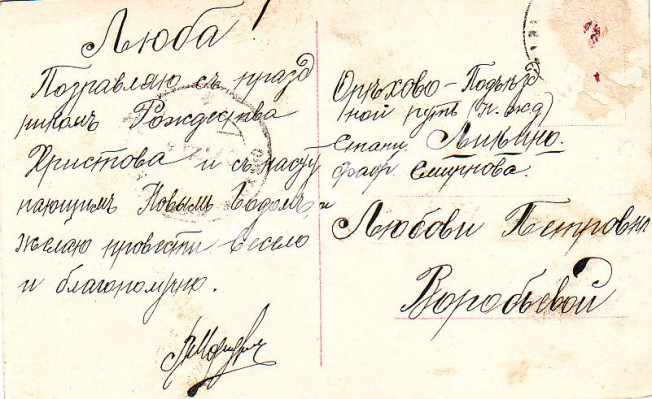 Люба!
Поздравляю съ празд
никомъ Рождества
Христова и съ насту
пающимъ Новымъ Годомъ, и
желаю провести весело
и благополучно.
Орѣхово – Подъѣзд
ной путь (Н. ж.д)
Станц. Ликино.
фабр. Смирнова.
Любови Петровнѣ
Воробьевой